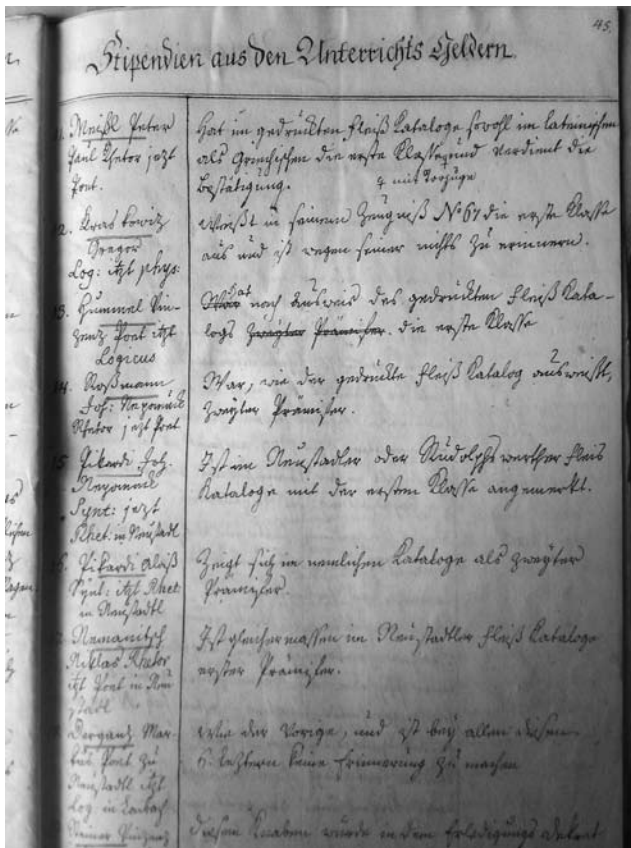 45.
Stipendien aus den Unterrichts Geldern.
Meißl Peter
Paul Rhetor jezt
Poet.
Hat im gedruckten Fleiß Kataloge sowohl im lateinischen
als Griechischen die erste Klasse und verdient die
Bestätigung.
4 mit Vorzuge
12. Kraskowitz
Gregor
Log: itzt phys:
Weißt in seinem Zeugniß No 67 die erste Klasse
aus und ist wegen seiner nichts zu erinnern.
13. Hummel Vin-
zenz Poet itzt
Logicus
hat
War nach Ausweis des gedruckten Fleiß Kata-
logs zweyter Prämifer. die erste Klasse
14. Roßmann
Joh: Nepomuk
Rhetor jezt Poet
War, wie der gedruckte Fleiß Katalog ausweißt,
zweyter Prämifer.
15 Pikardi Joh.
Nepomuk
Synt: jezt
Rhet: in Neustadl
Ist im Neustadler oder Rudolphswerther Fleis
Kataloge mit der ersten Klasse angemerkt.
16. Pikardi Aloiß
Synt: itzt Rhet
in Neustadtl
Zeigt sich im nemlichen Kataloge als zweyter
Prämifer.
Nemanitsch
Niklas Rhetor
itzt Poet in Neu
stadl
Ist gleichermassen im Neustadtler Fleiß Kataloge
erster Prämifer.
Derganz Mar-
kus Poet zu
Neustadtl itzt
Log in Laibach
Wie der Vorige, und ist bey allen diesen
6. leztern keine Erinnerung zu machen
Vinzenz
diesem Knaben wurde in dem Erledigungs